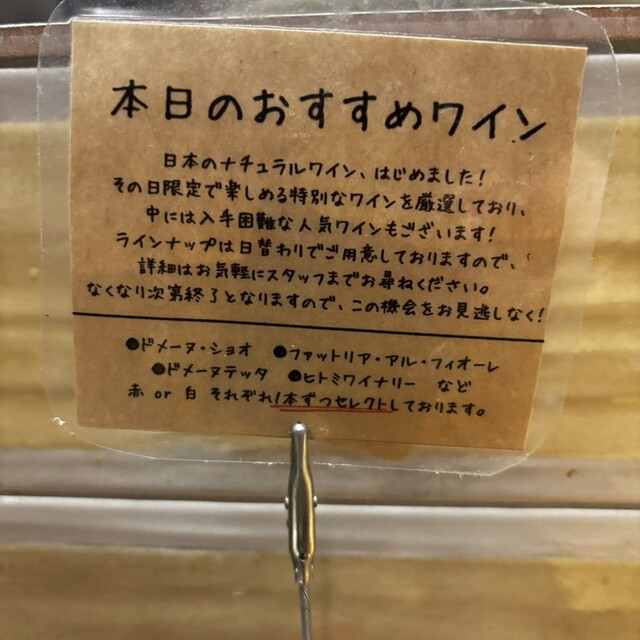 本日のおすすめワイン
日本のナチュラルワイン、はじめました!
その日限定で楽しめる特別なワインを厳選しており、
中には入手困難な人気ワインもございます!
ラインナップは日替わりでご用意しておりますので、
詳細はお気軽にスタッフまでお尋ねください。
なくなり次第終了となりますので、この機会をお見逃しなく!
●ドメーヌ・ショオ ●ファットリア・アル・フィオーレ
●ドメーヌテッタ ●ヒトミワイナリー など
赤 or 白 それぞれ1本ずつセレクトしております。